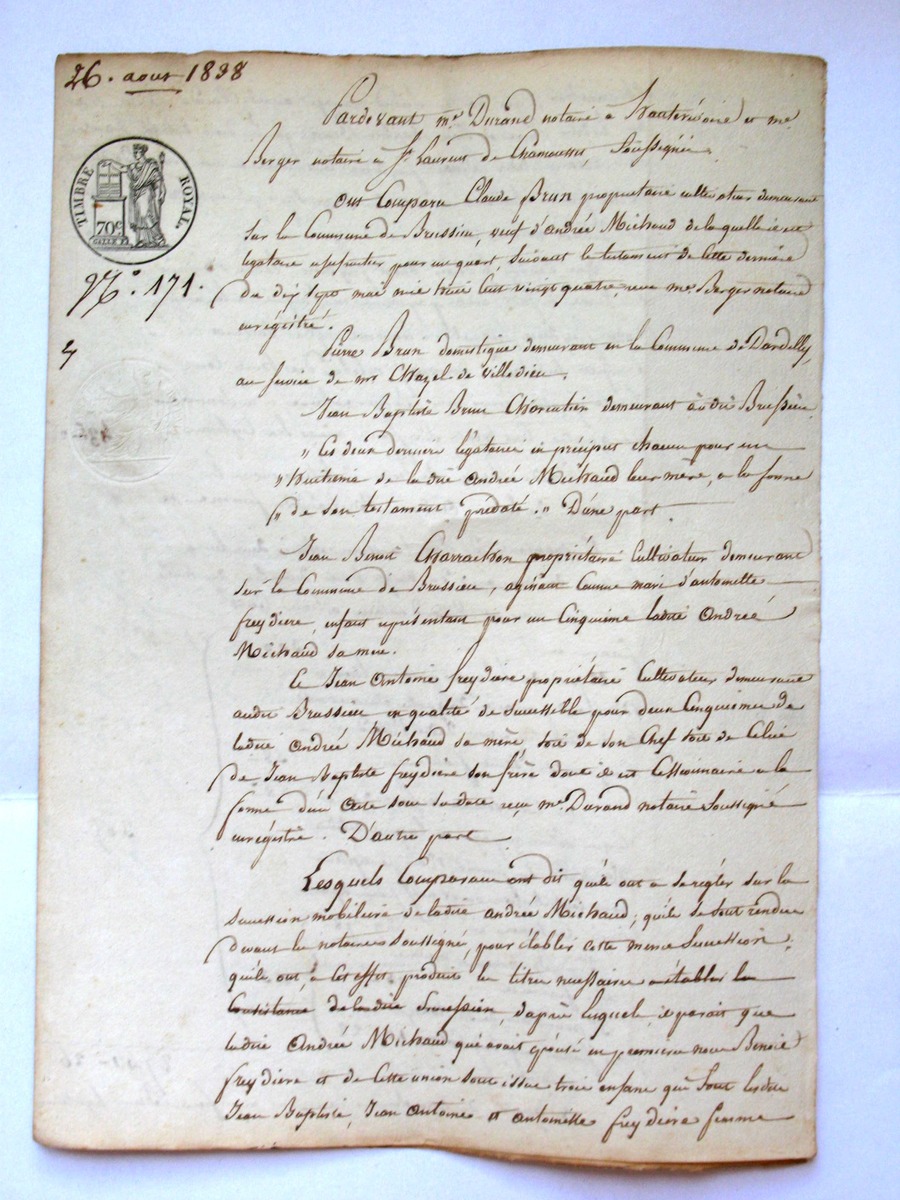 26. aout 1838
TIMBRE ROYAL.
70c
N.° 171.
Pardevant me. Durand notaire à hauterivoire et me.
Berger notaire a St. Laurent de Chamousset, Soussignés.
Ont Comparu Claude Brun propriétaire cultivateur demeurant
sur la Commune de Brussieu, veuf d'andrée Michaud de laquelle il est
légataire usufruitier pour un quart, suivant le testament de cette dernière
du dix sept mai mil huit cent vingt quatre, reçu me. Berger notaire
enrégistré.
Pierre Brun domestique demeurant en la Commune de Dardilly,
au service de mr Chazel de Villedieu.
Jean Baptiste Brun Charentier demeurant audit Brussieu
" Ces deux derniers légataires en préciput chacun pour un
" huitième de la dite andrée Michaud leur mère, a la forme
" de son testament prédaté. " D'une part
Jean Benoit Charrachon propriétaire Cultivateur demeurant
sur la Commune de Brussieu, agissant comme mari d'antoinette
freydière, enfant représentant pour un Cinquième ladite Andrée
Michaud sa mère.
Et Jean Antoine freydière propriétaire Cultivateur demeurant
audit Brussieu, en qualité de successible pour deux Cinquièmes de
ladite Andrée Michaud sa mère, soit de son Chef soit de Celui
de Jean Baptiste freydière son frère dont il est Cessionnaire a la
forme d'un acte sous sa date reçu me. Durand notaire Soussigné
enrégistré. D'autre part
Lesquels Comparans ont dit qu'ils ont a se régler sur la
succession mobilière de ladite andrée Michaud; qu'ils se sont rendus
devant les notaires soussigné, pour établir cette même Succession;
qu'ils ont, a cet effet, produit les titres nécessaires a établir la
Consistance de ladite Succession, d'après lesquels, il parait que
ladite Andrée Michaud qui avait épousé en premières noces Benoit
freydière et de cette union sont issus trois enfans qui sont lesdits
Jean Baptiste, Jean Antoine et antoinette freydière femme